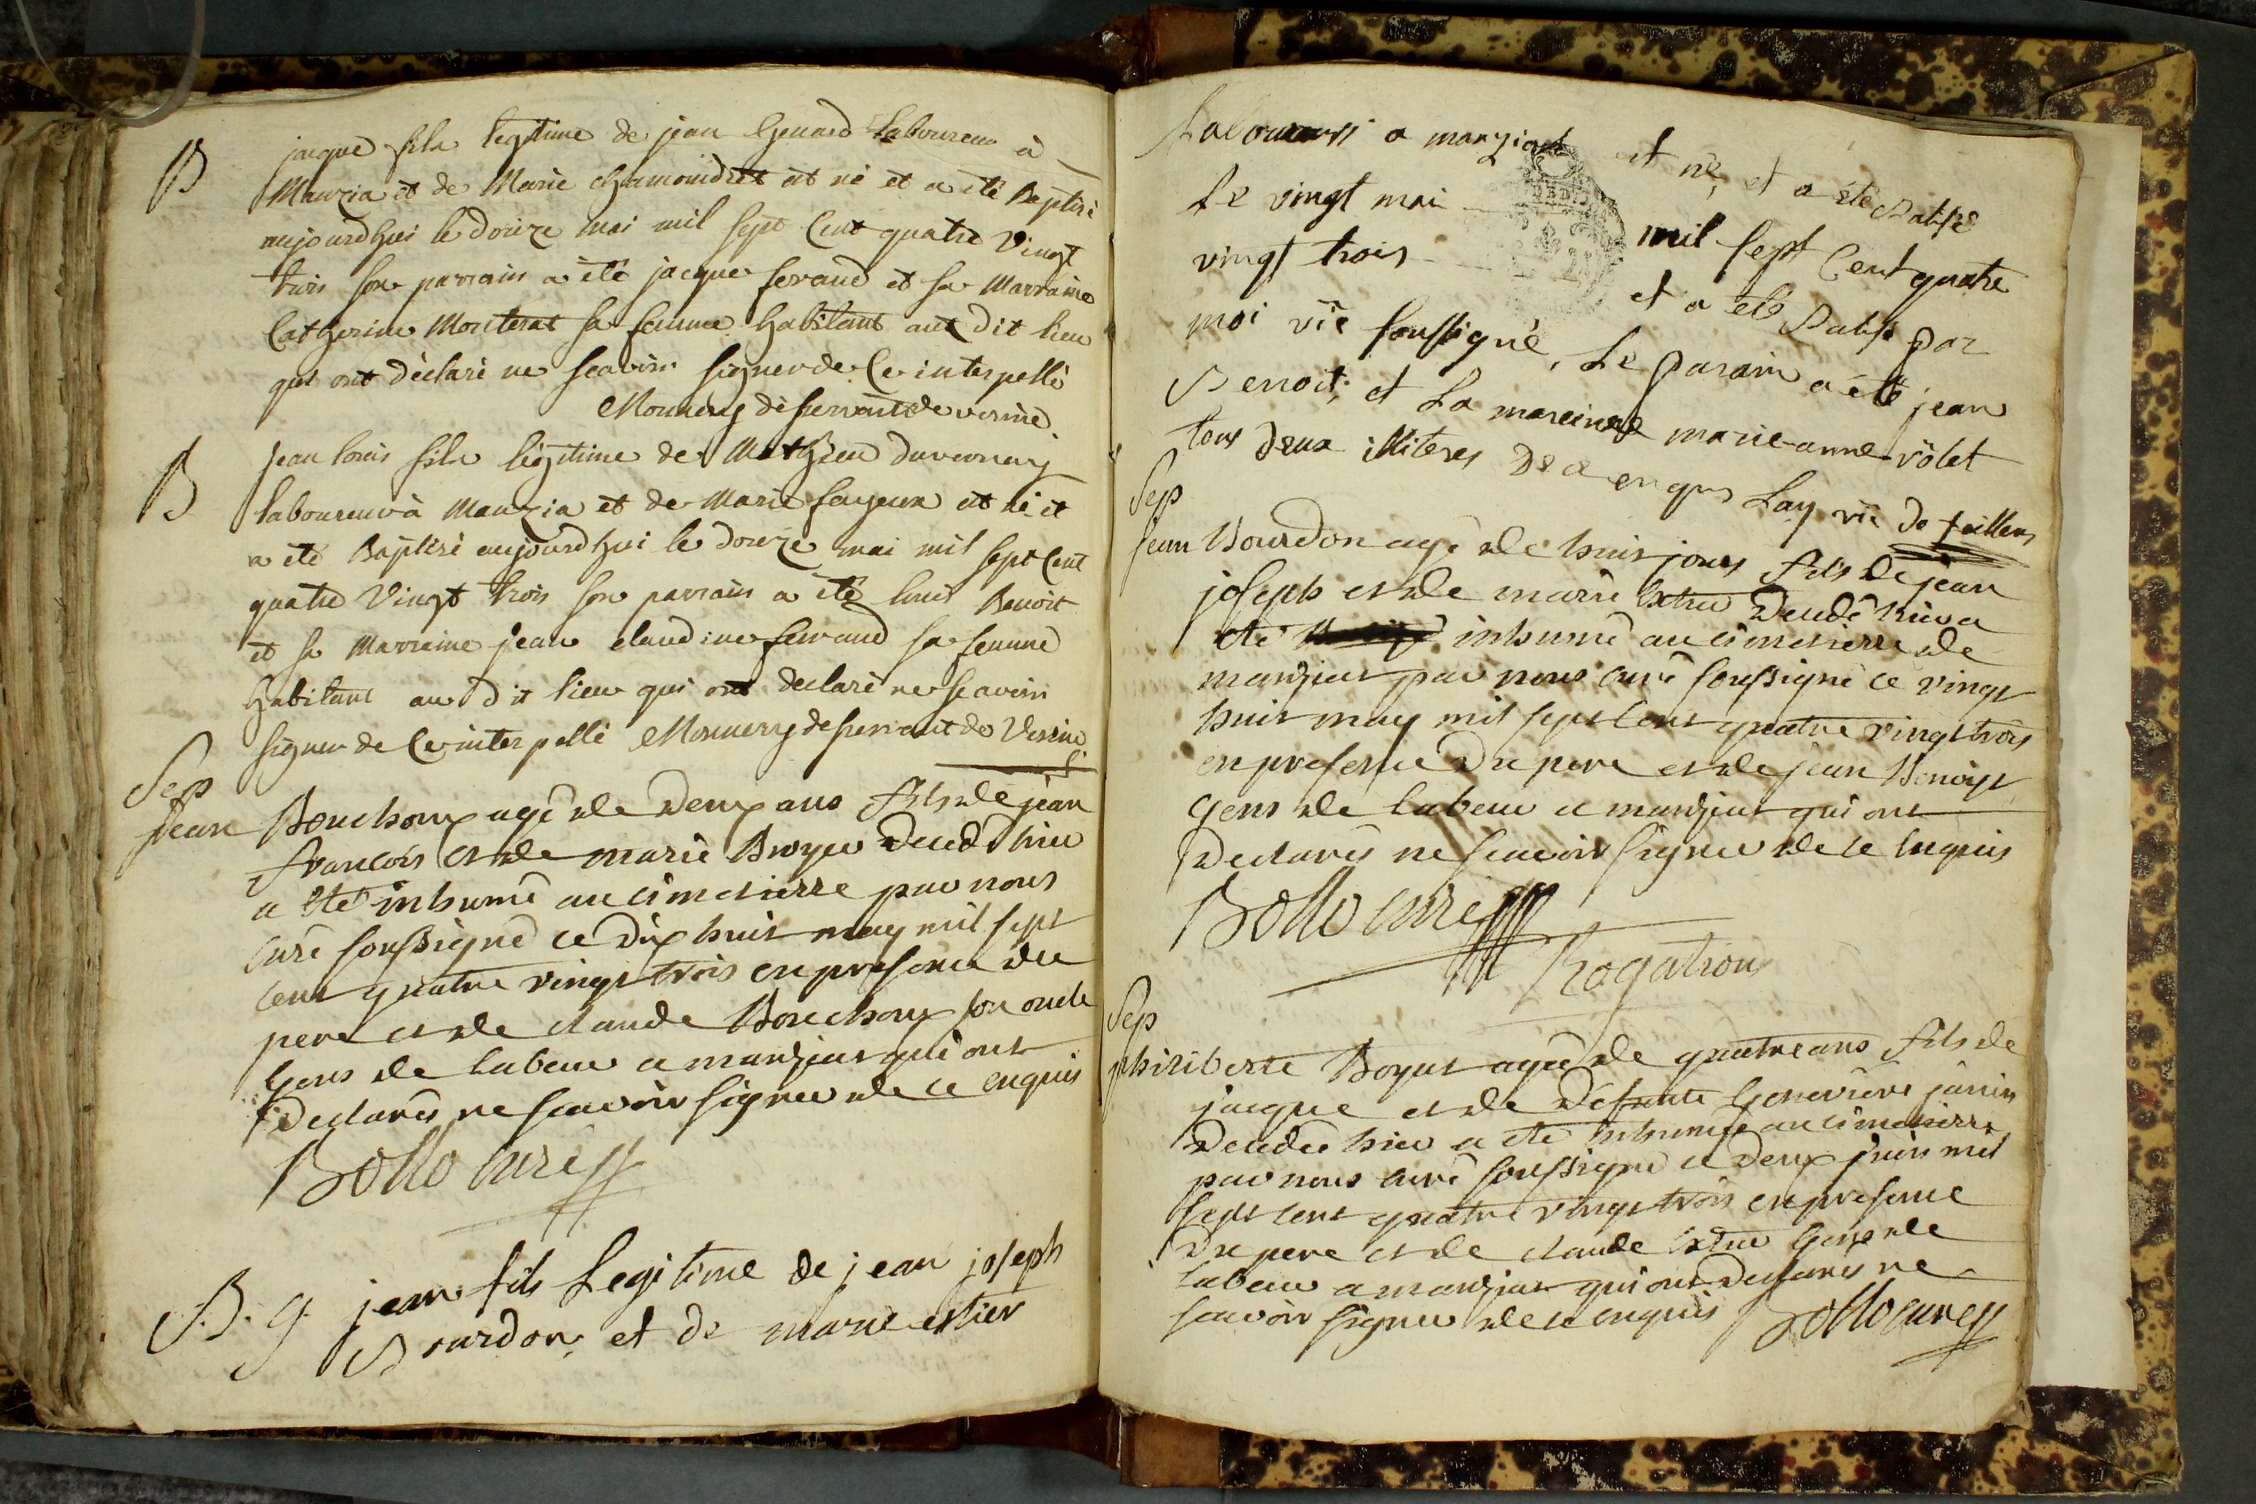 B
jacque fils legitime de jean Genard Laboureur à
Manzia et de Marie chamoindret est né et a été Baptisé
aujourdhui le douze mai mil sept Cent quatre Vingt
trois son parrain a été jacque feraud et sa Marraine
Catherine Monterat sa femme habitant aut dit lieu
qui ont déclaré ne scavoir signer de Ce interpellé
Monnery désservant de vesine
B
jean louis fils légitime de Mathieu duvernay
laboureur à Manzia et de Marie fayeux est né et
a été Baptisé aujourdhui le douze mai mil sept Cent
quatre Vingt trois son parrain a été louis Benoit
et sa Marraine jean claudine feraud sa femme
habitant au dit lieu qui ont declaré ne scavoir
signer de Ce interpellé Monnery desservant de Vesine
Sep
jean Bouchoux agé de deux ans fils de jean
francois et de marie Broyer decedé hier
a eté inhumé au cimetierre par nous
curé soussigné ce dix huit may mil sept
cent quatre vingt trois en presence du
pere et de claude Bouchoux son oncle
Gens de labeur a manziat qui ont
declarés ne scavoir signer de ce enquis
Bollo curé
B. g. jean fils Legitime de jean joseph
Bourdon, et de marie estier
Laboureurs a manziat est né, et a été Batisé
Le vingt mai mil sept Cent quatre
vingt trois et a été Batisé par
moi vic soussigné, Le parain a été jean
Benoit, et La mareinne marie-anne volet
tous deux illiteres de ce enquis Lay vic de feillens
Sep
jean Bourdon agé de huit jours fils de jean
joseph et de marie Extier decedé hier a
eté inhumé au cimetierre de
manziat par nous curé soussigné ce vingt
huit may mil sept cent quatre vingt trois
en presence du pere et de jean Benoist
gens de labeur a manziat qui ont
declarés ne scavoir signer de ce Enquis
Bollo curé
Rogation
Sep
philiberte Boyat agée de quatre ans fils de
jacque et de defunte Genevieve janin
decedée hier a eté inhumée au cimetierre
par nous curé soussigné ce deux juin mil
sept cent quatre vingt trois en presence
du pere et de claude Extier Gens de
labeur a manziat qui ont declarés ne
scavoir signer de ce enquis Bollo curé